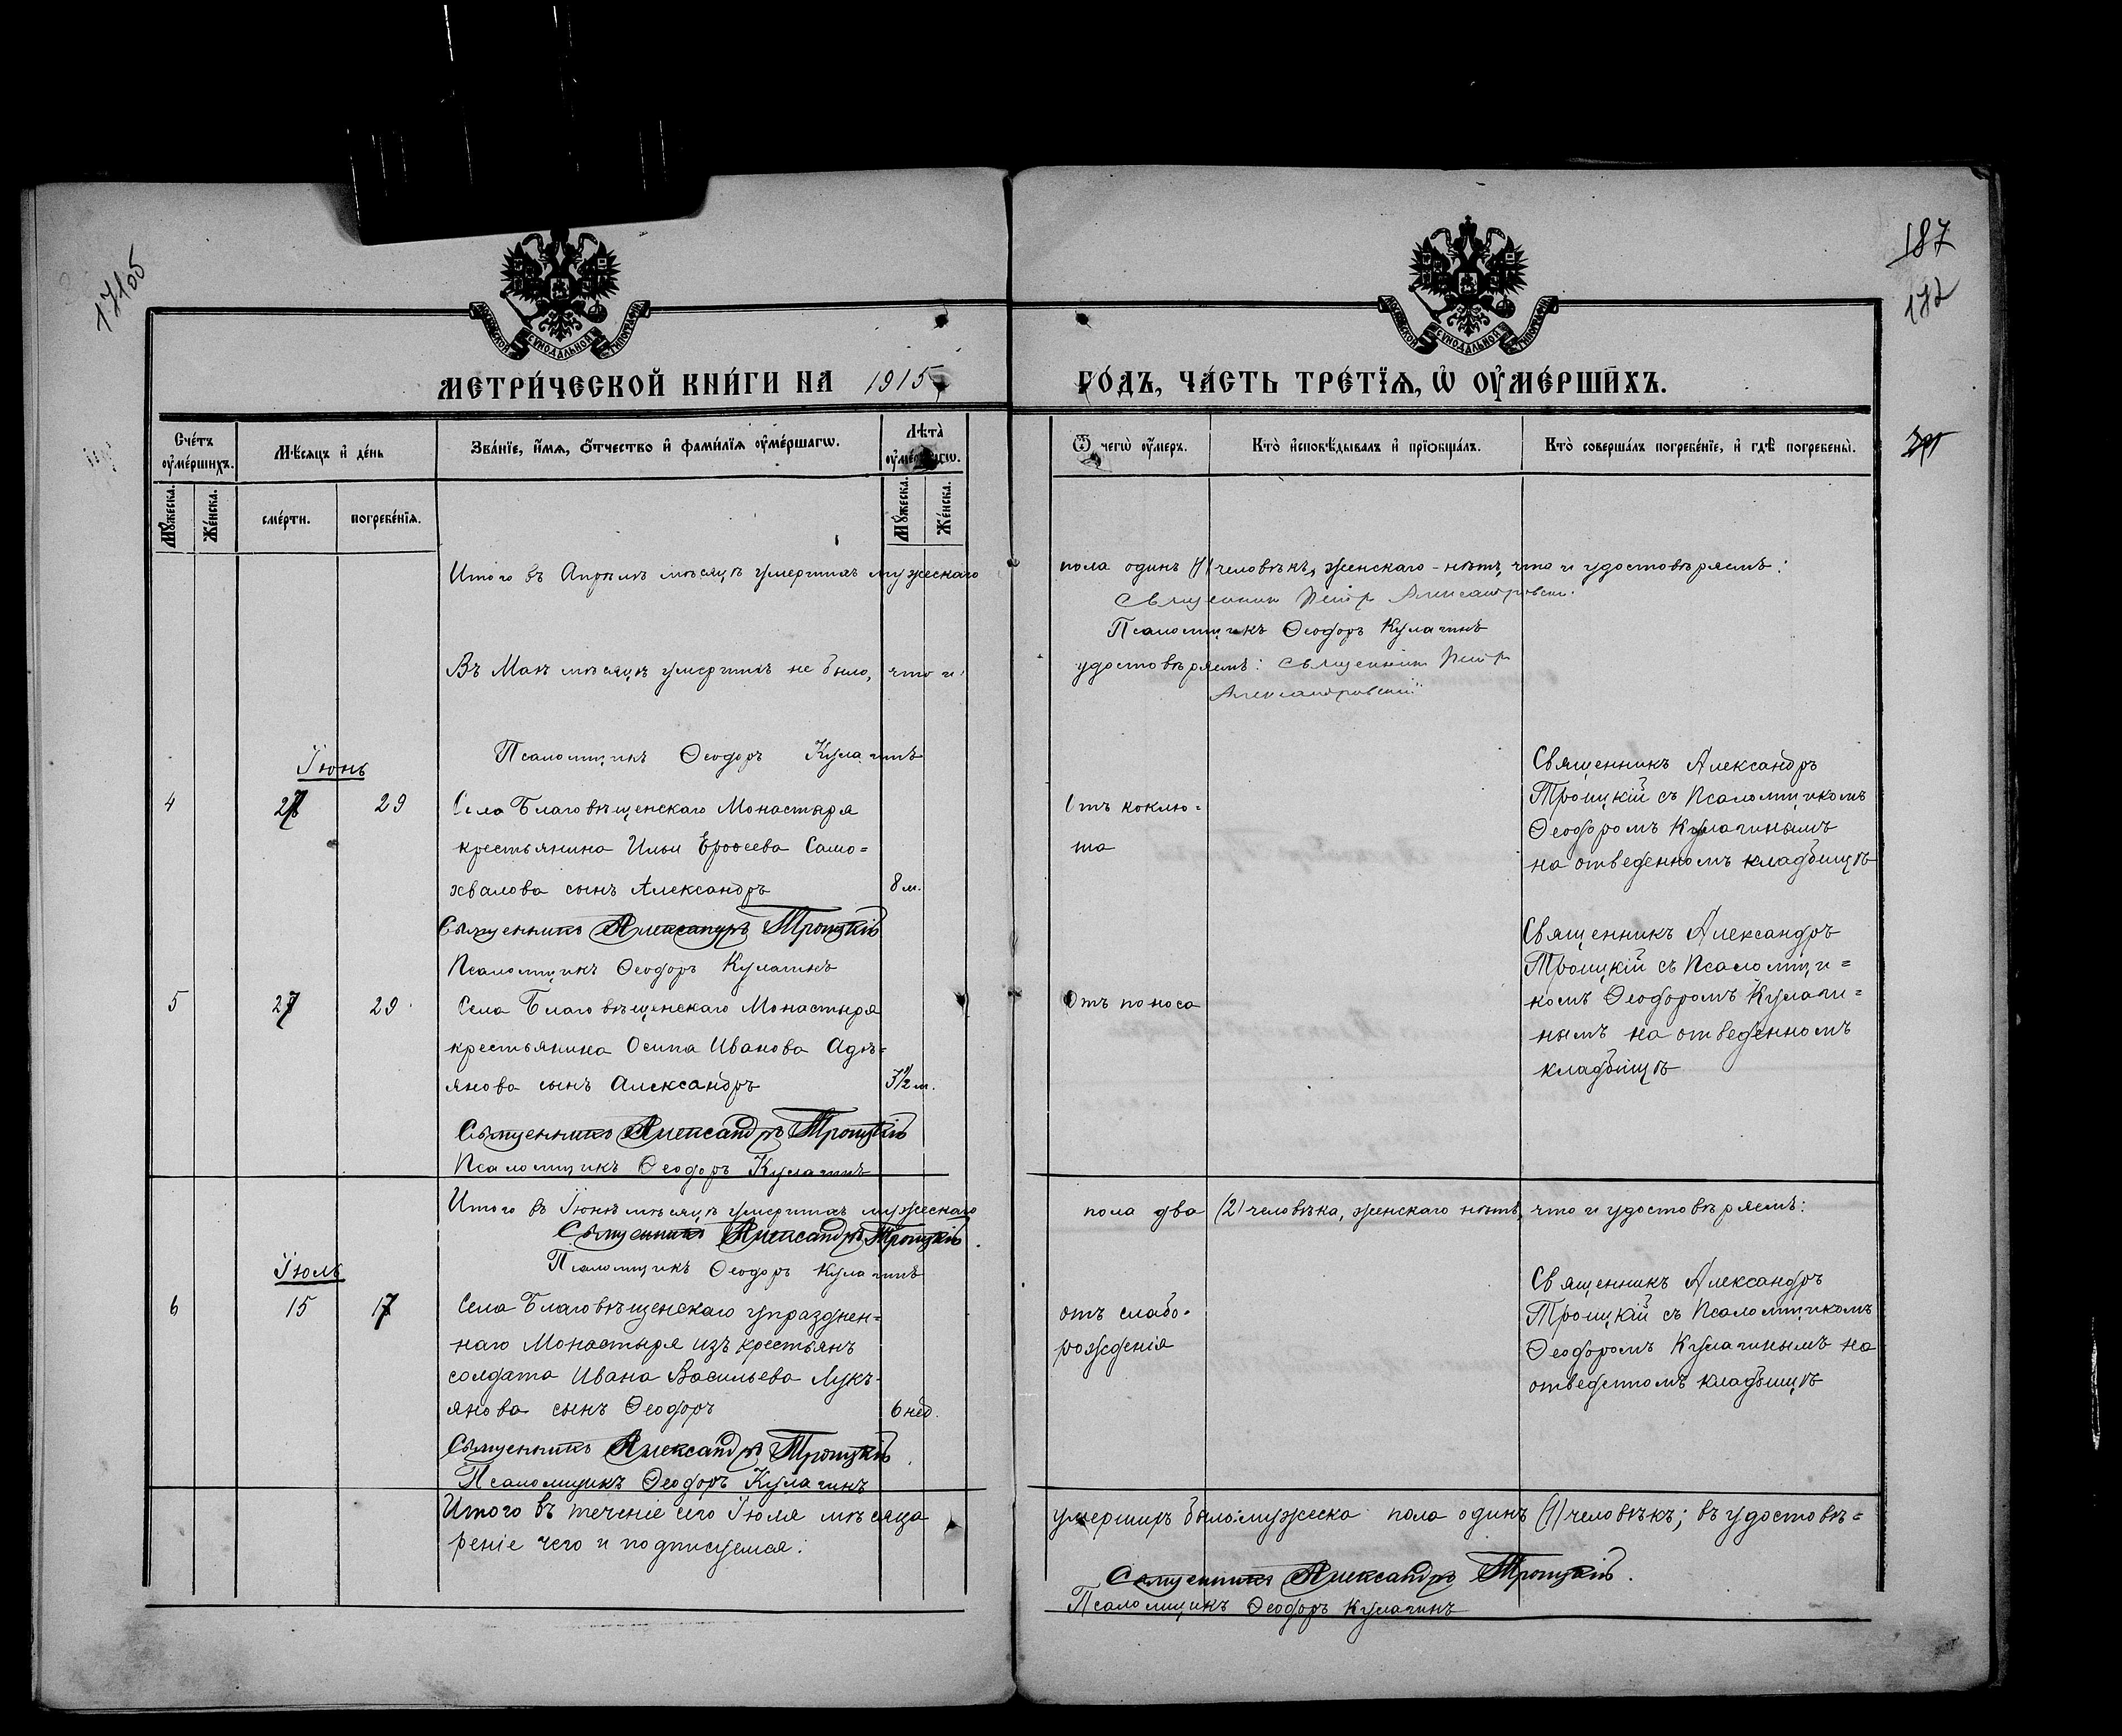 17105
187
172
МОСКОВСКОЙ СУНОДАЛЬНОЙ ТИПОГРАФІИ
МОСКОВСКОЙ СУНОДАЛЬНОЙ ТИПОГРАФІИ
МЕТРИ́ЧЕСКОЙ КНИ́ГИ НА 1915
ГО́ДЪ, ЧА́СТЬ ТРЕ́ТЇѦ, Ѡ҆ ОУ҆МЕ́РШИХЪ.
Сче́тъ оу҆ме́ршихъ.
Мѣ́сяцъ и҆ де́нь
Зва́нїе, и҆́мѧ, ѻ҆́тчество и҆ фами́лїѧ оу҆ме́ршагѡ.
Лѣ́та оу҆ме́ршагѡ.
Ѿ чегѡ̀ оу҆́меръ.
Кто̀ и҆сповѣ́дывалъ и҆ прїѡбща́лъ.
Кто̀ соверша́лъ погребе́нїе, и҆ гдѣ̀ погребены̀.
Мꙋ́жеска.
Же́нска.
сме́рти.
погребе́нїѧ.
Мꙋ́жеска.
Же́нска.
Итого въ Апрѣлѣ мѣсяцѣ умершихъ мужескаго
пола одинъ (1) человѣкъ, женскаго - нѣтъ, что и удостовѣряемъ:
Священник Петр Александровский.
Псаломщикъ Ѳеодоръ Кулагинъ
Въ Маѣ мѣсяцѣ умершихъ не было, что и
удостовѣряемъ: Священник Петр
Александровский
Псаломщикъ Ѳеодоръ Кулагинъ
Іюнь
4
27
29
Села Благовѣщенскаго Монастыря
крестьянина Ильи Ерѳеева Само=
хвалова сынъ Александръ
8 м.
Отъ коклю=
ша
Священникъ Александръ
Троицкій съ Псаломщикомъ
Ѳеодоромъ Кулагинымъ
на отведенномъ кладбищѣ
Священникъ Александръ Троицкій
Псаломщикъ Ѳеодоръ Кулагинъ
5
27
29
Села Благовѣщенскаго Монастыря
крестьянина Осипа Иванова Адъ=
янова сынъ Александръ
3½ м.
Отъ поноса
Священникъ Александръ
Троицкій съ Псаломщи=
комъ Ѳеодоромъ Кулаги=
нымъ на отведенномъ
кладбищѣ
Священникъ Александръ Троицкій
Псаломщикъ Ѳеодоръ Кулагинъ
Итого въ Іюнѣ мѣсяцѣ умершихъ мужескаго
пола два (2) человѣка, женскаго нѣтъ, что и удостовѣряемъ:
Священникъ Александръ Троицкій.
Псаломщикъ Ѳеодоръ Кулагинъ
Іюль
6
15
17
Села Благовѣщенскаго упразднен=
наго Монастыря изъ крестьянъ
солдата Ивана Васильева Лукъ-
янова сынъ Ѳеодоръ
6 нед.
отъ слабо-
рожденія
Священникъ Александръ
Троицкій съ Псаломщикомъ
Ѳеодоромъ Кулагинымъ на
отведенномъ кладбищѣ
Священникъ Александръ Троицкій
Псаломщикъ Ѳеодоръ Кулагинъ
Итого въ теченіе сего Іюля мѣсяца
умершихъ было: мужеска пола одинъ (1) человѣкъ; въ удостовѣ=
реніе чего и подписуемся:
Священникъ Александръ Троицкій.
Псаломщикъ Ѳеодоръ Кулагинъ